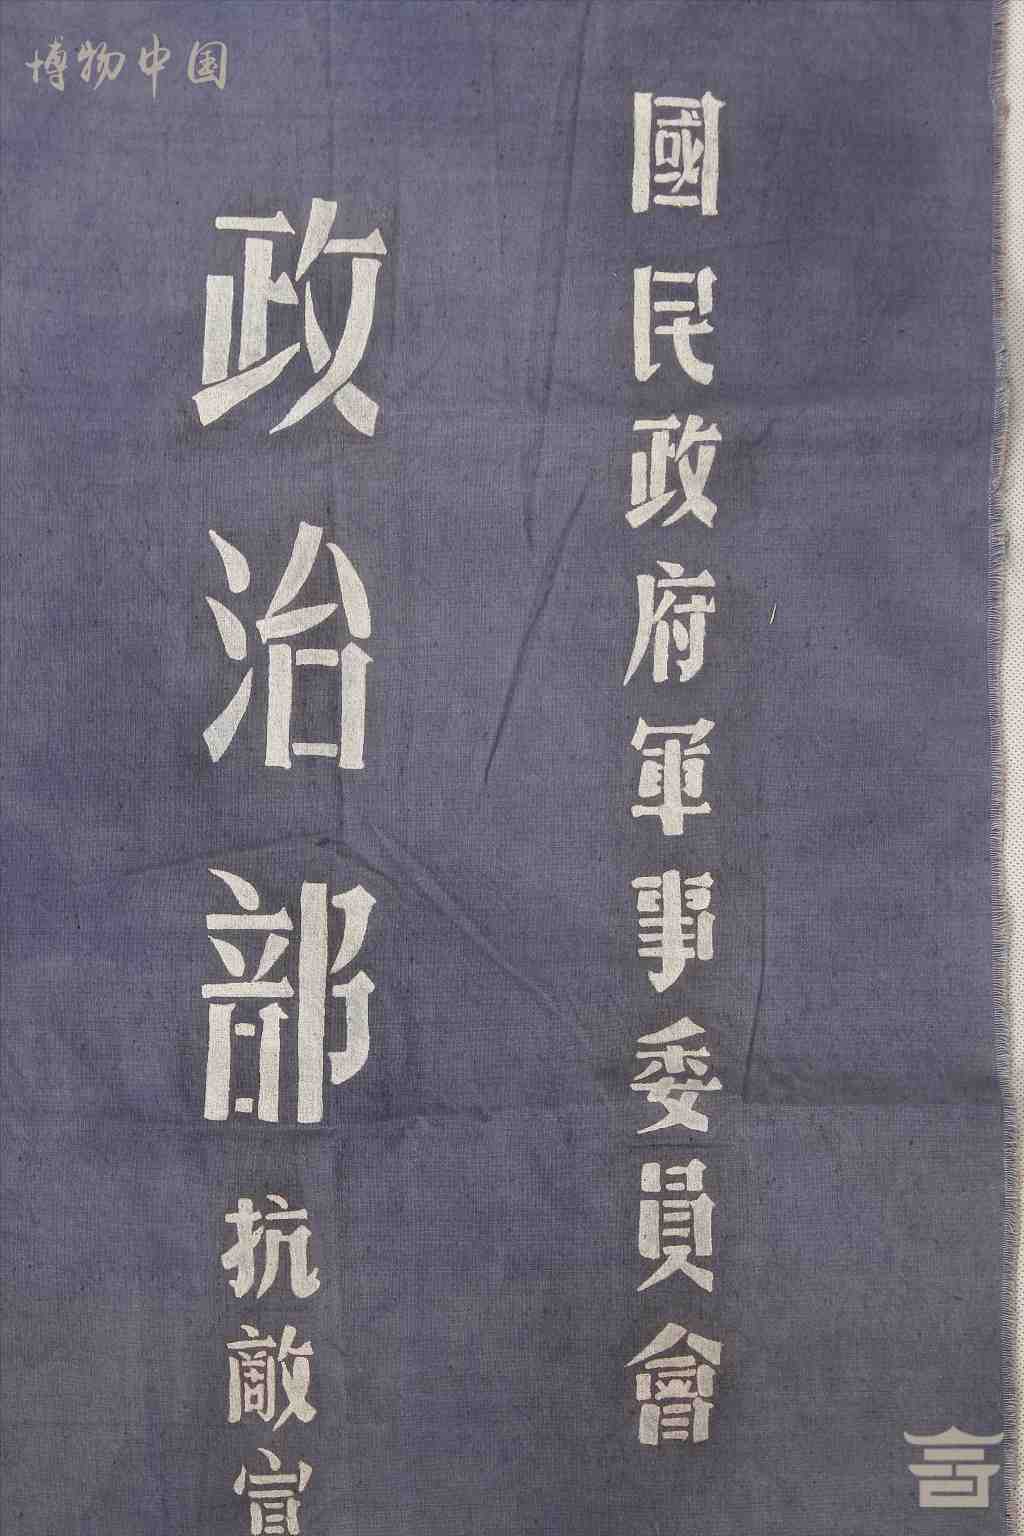 博物中国
國民政府軍事委員會
政治部抗敵宣